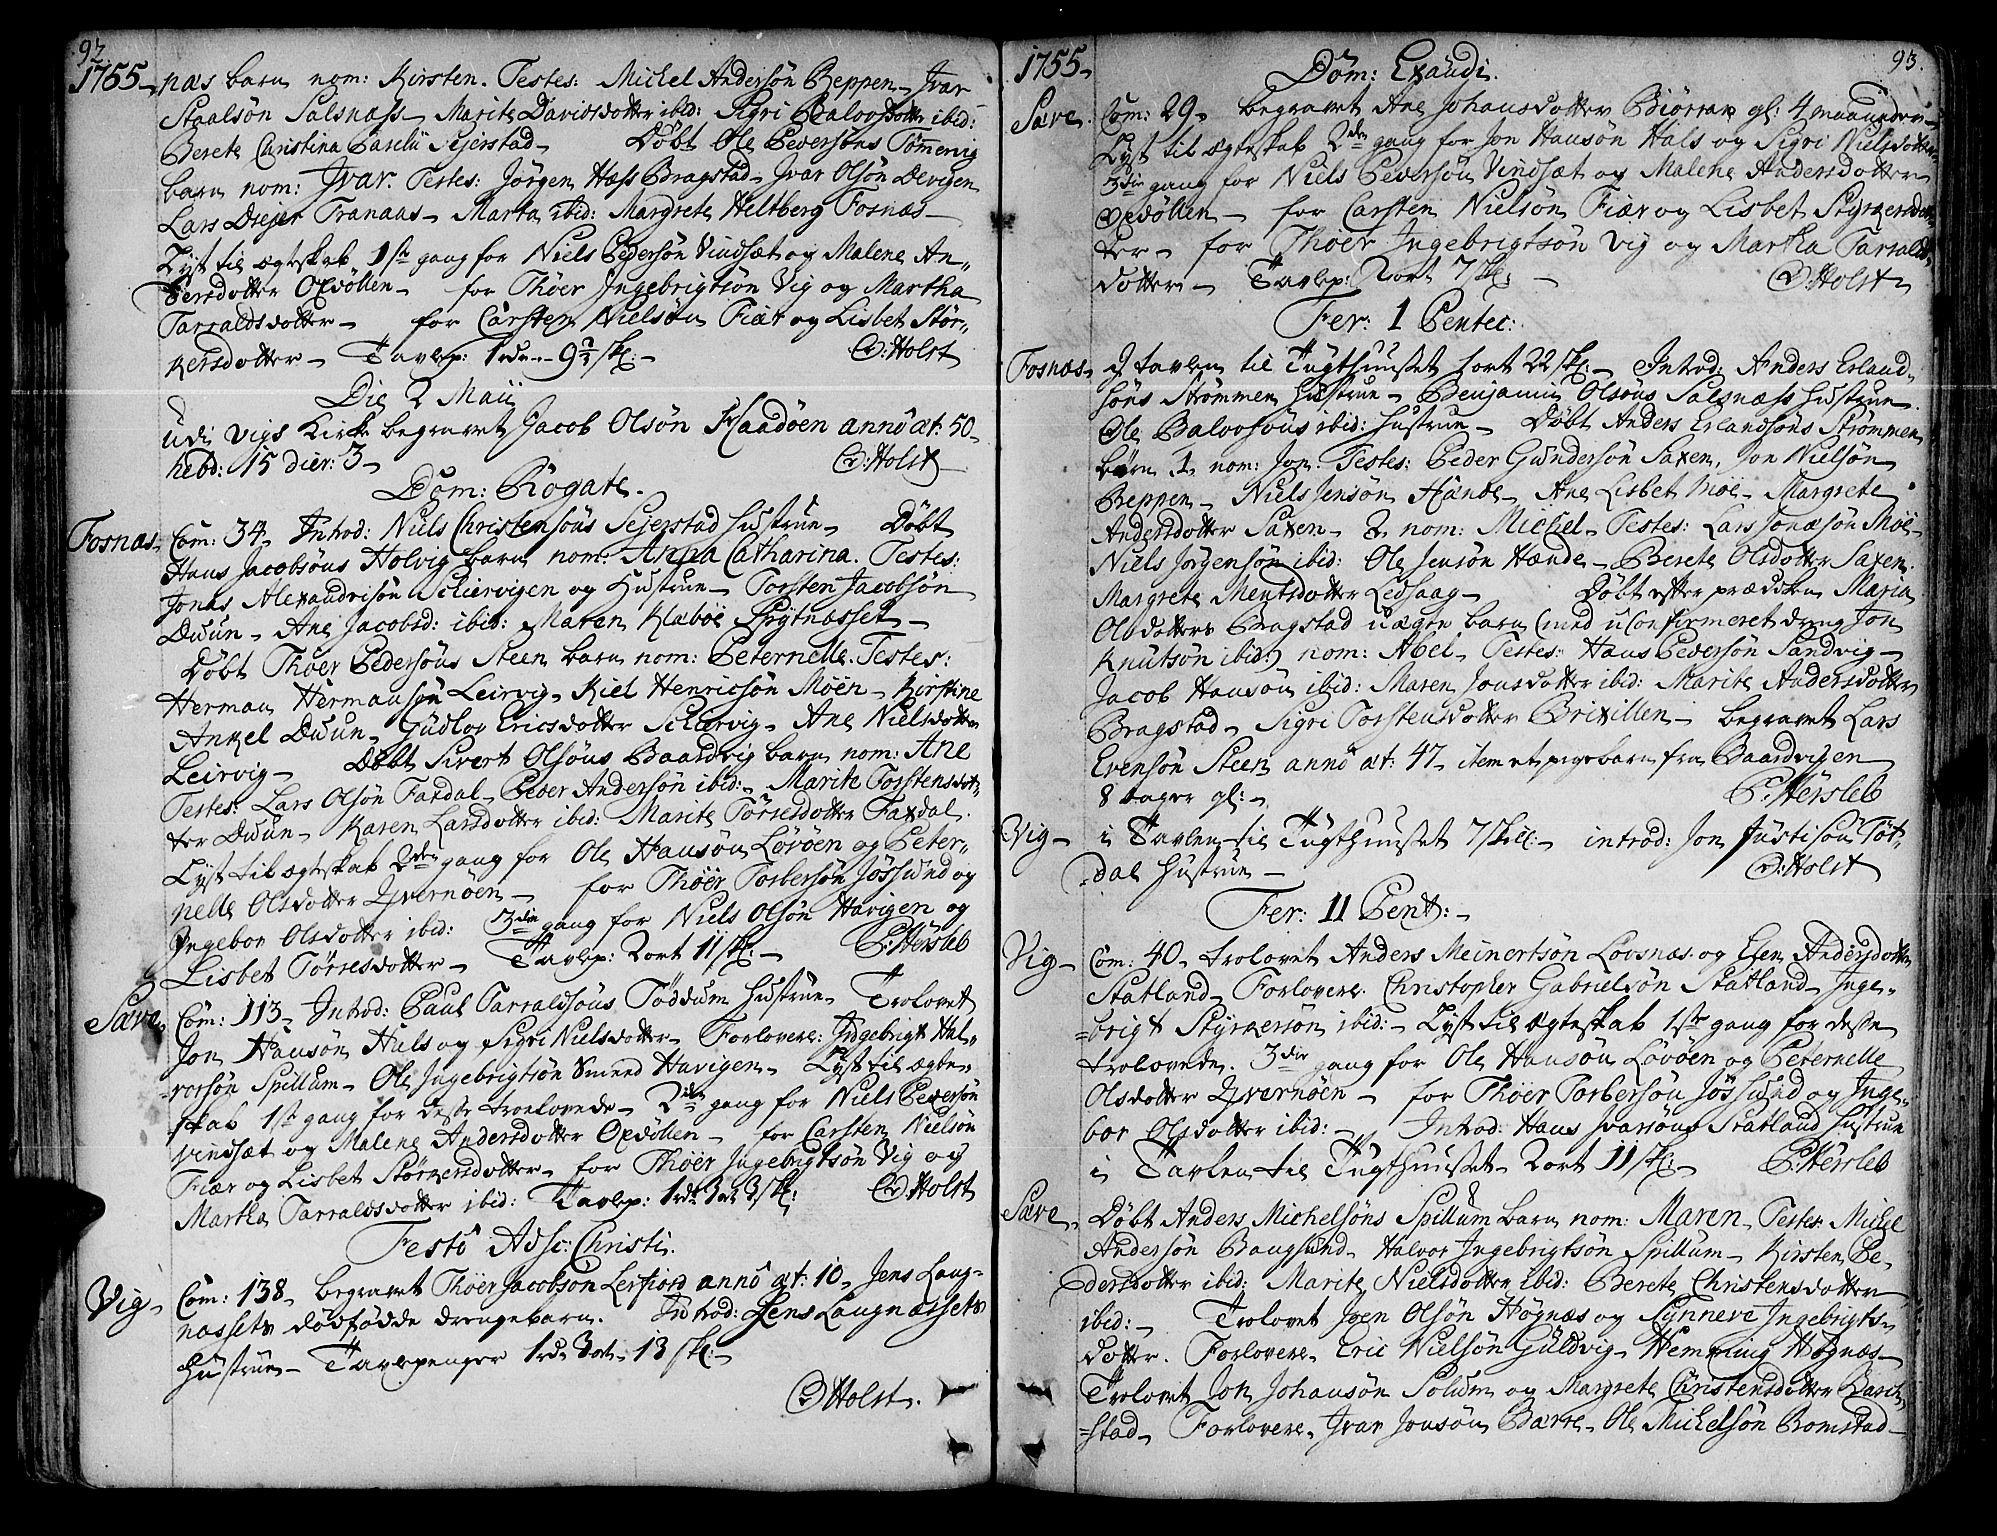 92.
1755. næs barn nom: Kirsten. Testes: Michel Andersøn Beppen. Ivar
Staalsøn Salsnæss. Marite Davidsdotter ibid: Sigri Baloosdotter ibid:
Berete Christina Barelii Sejerstad. Døbt Ole Pedersøns Tømmervig
barn nom: Ivar. Testes: Jørgen Hass Bragstad. Ivar Olsøn Devigen
Lars Drejer Tranaas. Marta ibid: Margrete Heltberg Fosnæs.
Lyst til ægteskab 1ste gang for Niels Pedersøn Vindsæt og Malene An-
dersdotter Opdøllen. for Thøer Ingebrigtsøn Vig og Martha
Tarraldsdotter. for Carsten Nielsøn Fiær og Lisbet Stør-
kersdotter. Tavlep: 1 rdr. 9½ sk:. C: Holst
Die 2 Maii
udi Vigs Kirke begravet Jacob Olsøn Haadøen anno æt: 50.
hebd: 15 dier: 3. C: Holst
Dom: Rogate.
Fosnæs. Com: 34. Introd: Niels Christensøns Sejerstad Hustrue. Døbt
Hans Jacobsøns Holvig barn nom: Anna Catharina. Testes:
Jonas Alexandersøn Schiervigen og Hustrue. Torsten Jacobsøn
Duun. Ane Jacobsd: ibid: Maren Klæbøe Prytnæsset.
Døbt Thøer Pedersøns Steen barn nom: Peternelle. Testes:
Herman Hermansøn Leirvig. Kiel Henricsøn Moen. Kirstine
Ankel Duun. Gudlov Ericsdotter Schiervig. Ane Nielsdotter
Leirvig. Døbt Sivert Olsøns Baardvig barn nom: Ane
Testes: Lars Olsøn Faxdal. Peder Andersøn ibid:. Marite Torstensdot-
ter Duun. Karen Larsdotter ibid: Marite Tørresdotter Faxdal.
Lyst til ægteskab 2den gang for Ole Hansøn Løvøen og Peter-
nelle Olsdotter Qvernøen. for Thøer Torbersøn Jøssund og
Ingebor Olsdotter ibid: 3die gang for Niels Olsøn Havigen og
Lisbet Tørresdotter. Tavlep: 2 ort 11 sk:. P: Hersleb
Sæve. Com: 113. Introd: Paul Tarraldsøns Tøddum Hustrue. Trolovet
Jon Hansøn Hals og Sigri Nielsdotter. Forlovere: Ingebrigt Hal-
vorsøn Spillum. Ole Ingebrigtsøn Smeed Havigen. Lyst til ægte-
skab 1ste gang for desse troelovede. 2den gang for Niels Pedersøn
Vindsæt og Malene Andersdotter Opdøllen. for Carsten Nielsøn
Fiær og Lisbet Størkersdotter. for Thøer Ingebrigtsøn Vig og
Martha Tarraldsdotter ibid: Tavlep: 1 rdr 3 ort 3 sk: C: Holst
Festo Adsc: Christi.
Vig. Com: 138. begravet Thøer Jacobsøn Lerfiord anno æt: 10. Jens Laug-
næssets dødfødde drengebarn. Introd: Jens Laugnæssets
Hustrue. Tavlepenger 1 rd 3 ort 13 sk:.
C: Holst.
93.
1755. Dom: Exaudi.
Sæve. Com: 29. begravet Ane Johansdotter Biørran gl: 4 maaneder.
Lyst til ægteskab 2den gang for Jon Hansøn Hals og Sigri Nielsdotter
3die gang for Niels Pedersøn Vindsæt og Malene Andersdotter
Opdøllen. for Carsten Nielsøn Fiær og Lisbet Styrkersdot-
ter. for Thøer Ingebrigtsøn Vig og Martha Tarralds-
dotter. Tavlep: 2 ort 7 sk:. C: Holst
Fer: 1 Pentec:
Fosnæs. I tavlen til Tugthuuset 2 ort 22 sk:. Introd: Anders Erland-
søns Strømmen Hustrue. Benjamin Olsøns Salsnæss Hustrue.
Ole Baloosøns ibid: Hustrue. Døbt Anders Erlandsøns Strømmen
børn 1. nom: Jon. Testes: Peder Gundersøn Saxen, Jon Nielsøn
Beppen. Niels Jensøn Hænde. Ane Lisbet Moe. Margrete
Andersdotter Saxen. 2. nom: Michel. Testes: Lars Jonæsøn Moe.
Niels Jørgensøn ibid: Ole Jensøn Hænde. Berete Olsdotter Saxen.
Margrete Mentsdotter Ledsaag. Døbt efter prædiken Maria
Olsdotters Bragstad uægte barn (med uConfirmeret dreng Jon
Knutsøn ibid:) nom: Abel. Testes: Hans Pedersøn Sandvig.
Jacob Hansøn ibid: Maren Jonsdotter ibid: Marite Andersdotter
Bragstad. Sigri Torstensdotter Brixillen. begravet Lars
Evensøn Steen anno æt: 47. item et pigebarn fra Baardvigen
8 dager gl:. P: Hersleb
Vig. i Tavlen til Tugthuuset 7 skill:. introd: Jon Justisøn Tøt-
dal Hustrue. C: Holst
Fer: II Pent:.
Vig. Com: 40. trolovet Anders Meinertsøn Lovsnæs og Elen Andersdotter
Statland. Forlovere. Christopher Gabrielsøn Statland. Inge-
brigt Styrkersøn ibid:. Lyst til ægteskab 1ste gang for desse
trolovede. 3die gang for Ole Hansøn Løvøen og Peternelle
Olsdotter Qvernøen. for Thøer Torbersøn Jøssund og Inge-
bor Olsdotter ibid:. Introd: Hans Ivarsøns Statland Hustrue
i Tavlen til Tugthuuset 2 ort 11 sk:. P: Hersleb
Sæve. Døbt Anders Michelsøns Spillum barn nom: Maren. Testes: Michel
Andersøn Bangsund. Halvor Ingebrigtsøn Spillum. Kirsten Pe-
dersdotter ibid: Marite Nielsdotter ibid: Berete Christensdotter
ibid:. Trolovet Joen Olsøn Høgnæs og Synneve Ingebrigts-
dotter. Forlovere. Eric Nielsøn Guldvig. Hemming Høgnæs.
Trolovet Jon Johansøn Solum og Margrete Christensdotter Barch-
stad. Forlovere. Ivar Jonsøn Barre. Ole Michelsøn Romstad.